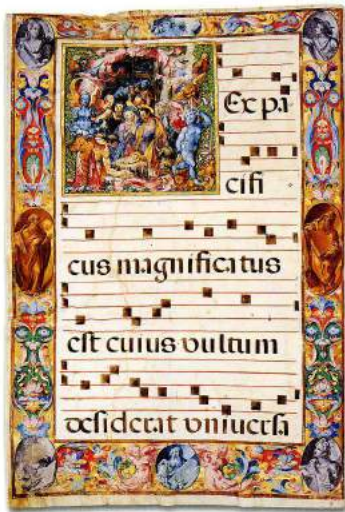 Ex pa
cifi
cus magnificatus
est cuius vultum
desiderat vniuersa